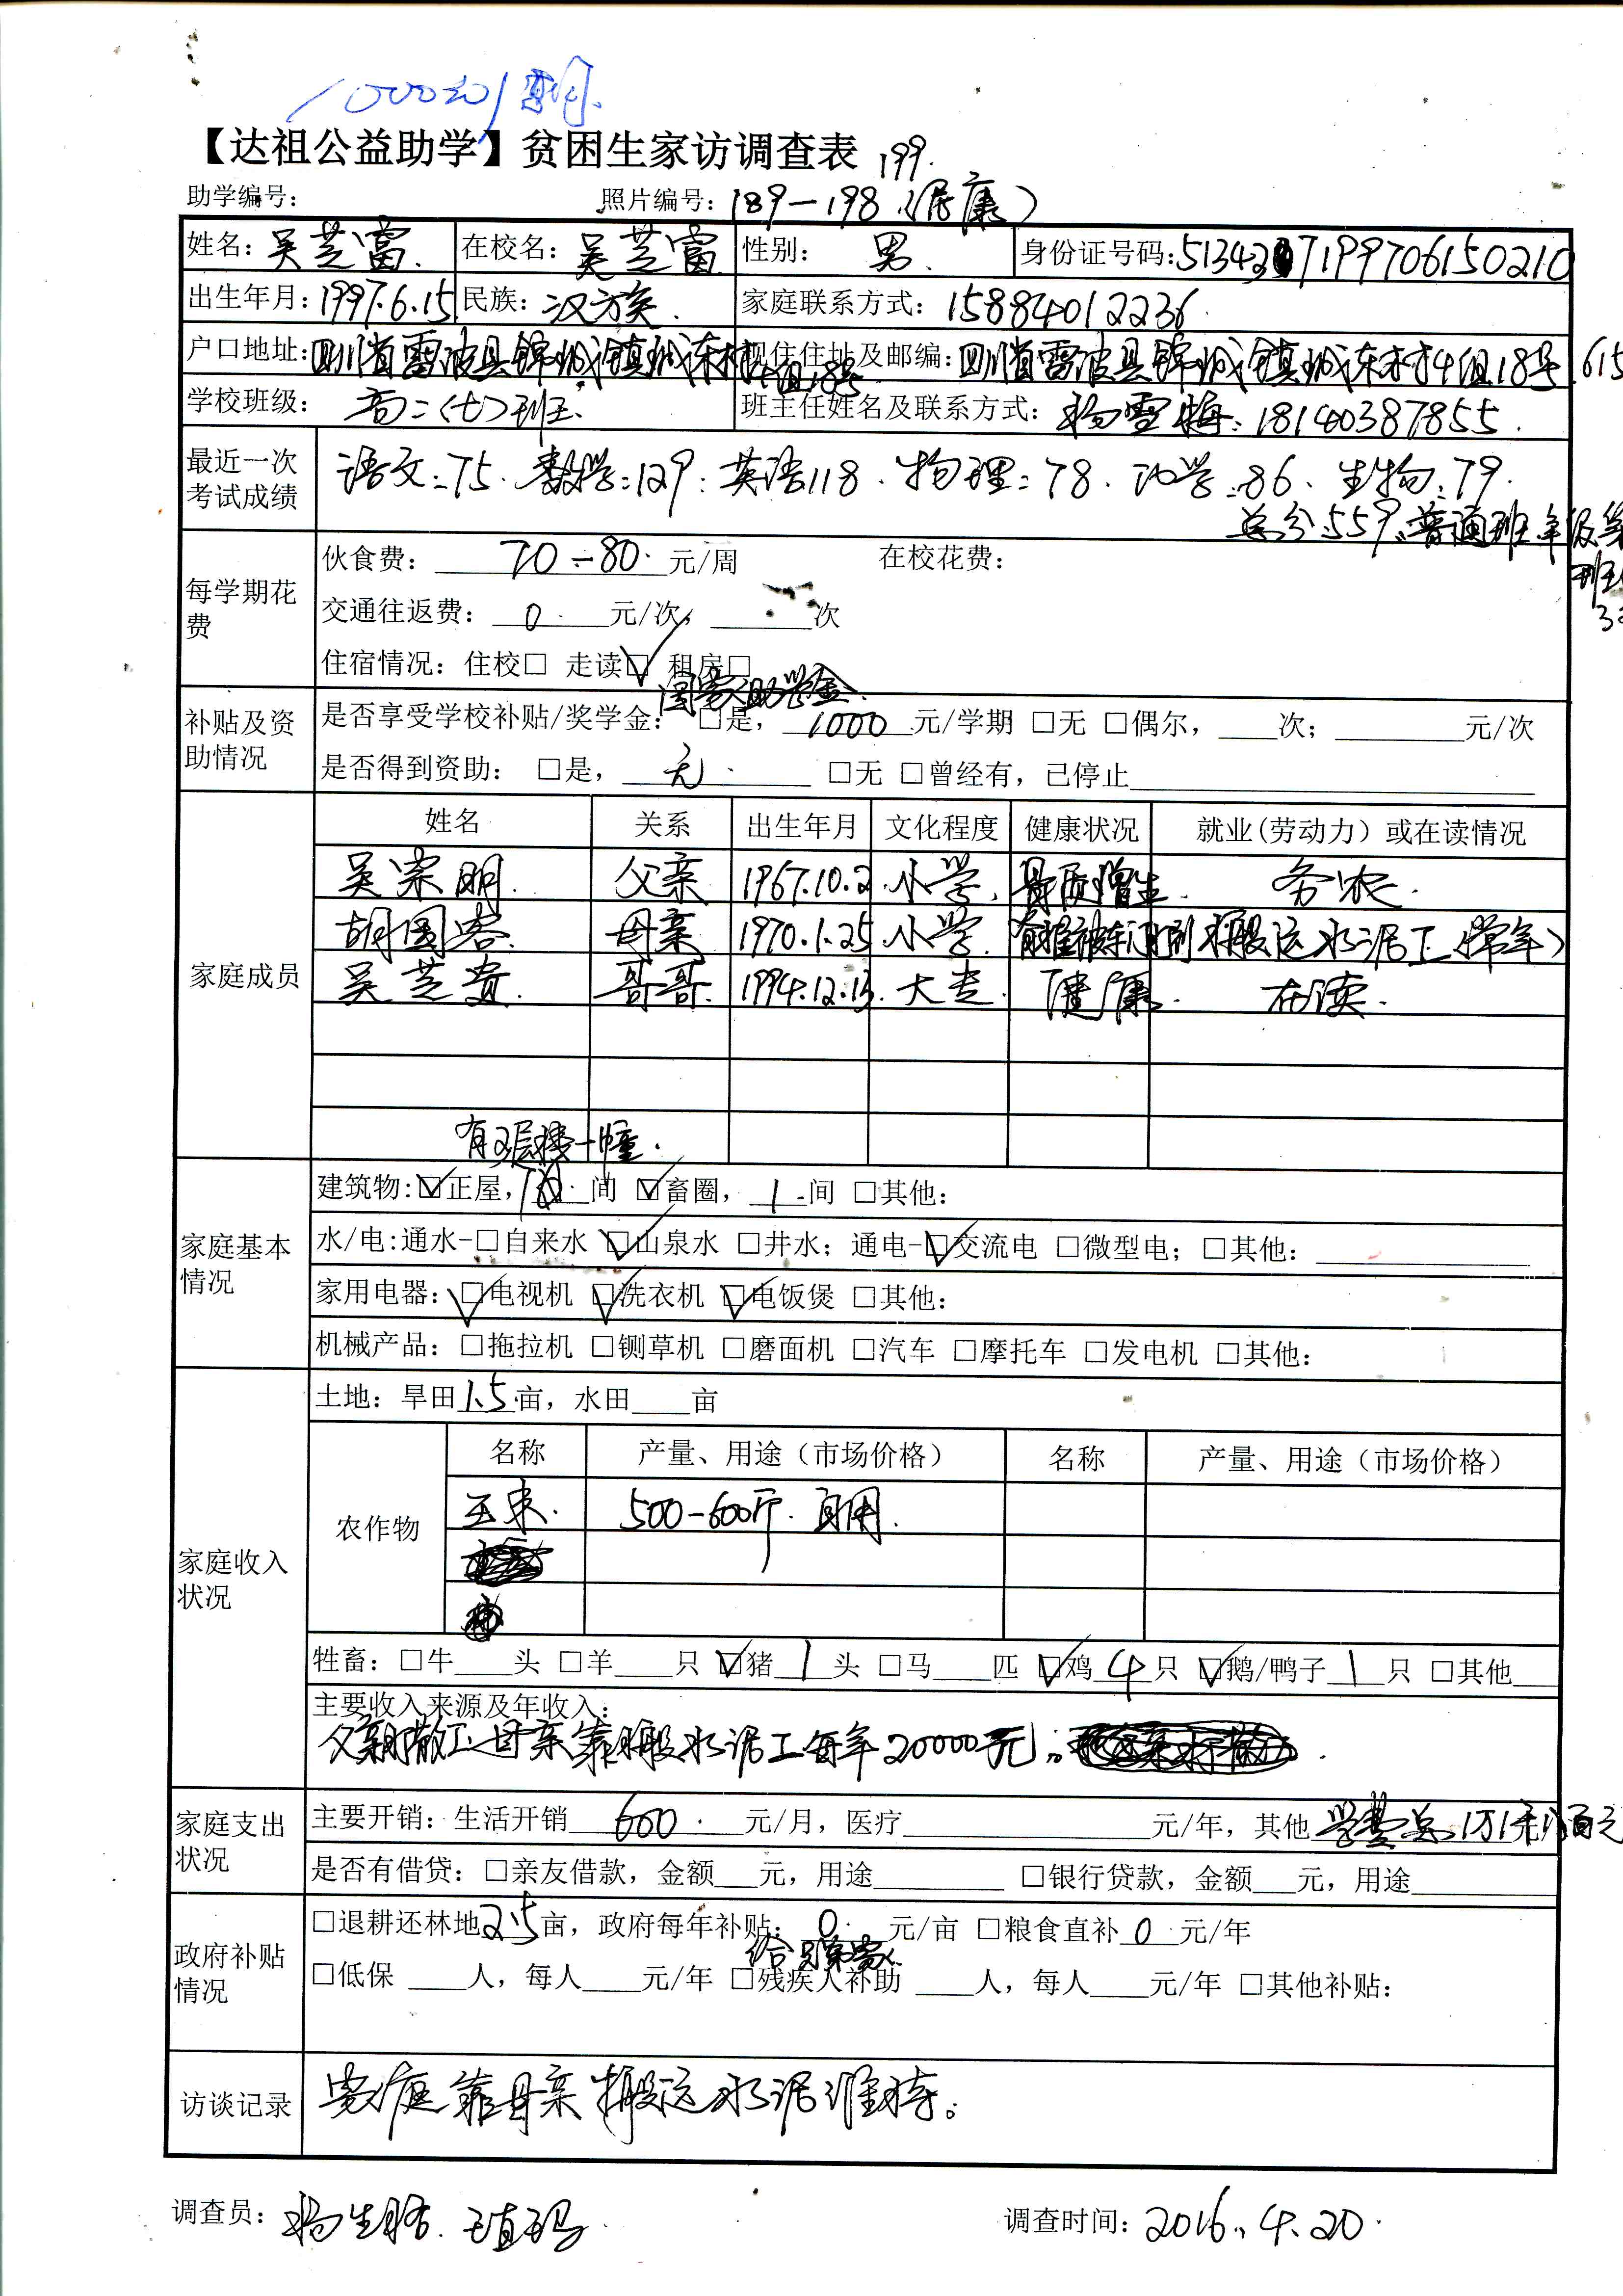 【达祖公益助学】贫困生家访调查表 199.
助学编号： 照片编号：189－198（健康）
姓名：吴芝富. 在校名：吴芝富 性别：男. 身份证号码：
出生年月：1997.6.15 民族：汉族. 家庭联系方式：15884012236.
户口地址：四川省雷波县锦城镇城东村4组18号 现住住址及邮编：四川省雷波县锦城镇城东村4组18号.615
学校班级：高二〈七〉班. 班主任姓名及联系方式：杨雪梅：18140387855.
最近一次考试成绩 语文：75. 数学：129：英语118. 物理：78. 化学：86、生物：79.
总分：559.普通班年级第
班
每学期花费 伙食费：70－80.元/周 在校花费：
交通往返费：0.元/次，____次
住宿情况：住校□ 走读☑ 租房□
国家助学金.
补贴及资助情况 是否享受学校补贴/奖学金：□是，1000元/学期 □无 □偶尔，____次；____元/次
是否得到资助：□是，无. □无 □曾经有，已停止____
家庭成员 姓名 关系 出生年月 文化程度 健康状况 就业(劳动力）或在读情况
吴宗明. 父亲 1967.10.2 小学. 骨质增生. 务农.
胡国容. 母亲 1970.1.25 小学. 搬运水泥工（常年）
吴芝贵. 哥哥. 1994.12.13. 大专. 健康. 在读.
有2层楼一幢.
家庭基本情况 建筑物：☑正屋，间 ☑畜圈，1.间 □其他：
水/电:通水-□自来水 ☑山泉水 □井水；通电-☑交流电 □微型电；□其他：____
家用电器：☑电视机 ☑洗衣机 ☑电饭煲 □其他：
机械产品：□拖拉机 □铡草机 □磨面机 □汽车 □摩托车 □发电机 □其他：
家庭收入状况 土地：旱田1.5亩，水田____亩
农作物 名称 产量、用途（市场价格） 名称 产量、用途（市场价格）
玉米. 500-600斤. 自用.
牲畜：□牛____头 □羊____只 ☑猪1头 □马____匹 ☑鸡4只 ☑鹅/鸭子1只 □其他____
主要收入来源及年收入：
父亲散工.母亲靠搬水泥工每年20000元。
家庭支出状况 主要开销：生活开销600.元/月，医疗____元/年，其他学费总1万1千八百元
是否有借贷：□亲友借款，金额___元，用途____ □银行贷款，金额___元，用途____
政府补贴情况 □退耕还林地2.5亩，政府每年补贴：0.元/亩 □粮食直补0元/年
□低保 ____人，每人____元/年 □残疾人补助 ____人，每人____元/年 □其他补贴：
访谈记录 家庭靠母亲搬运水泥维持。
调查员： 调查时间：2016.4.20.